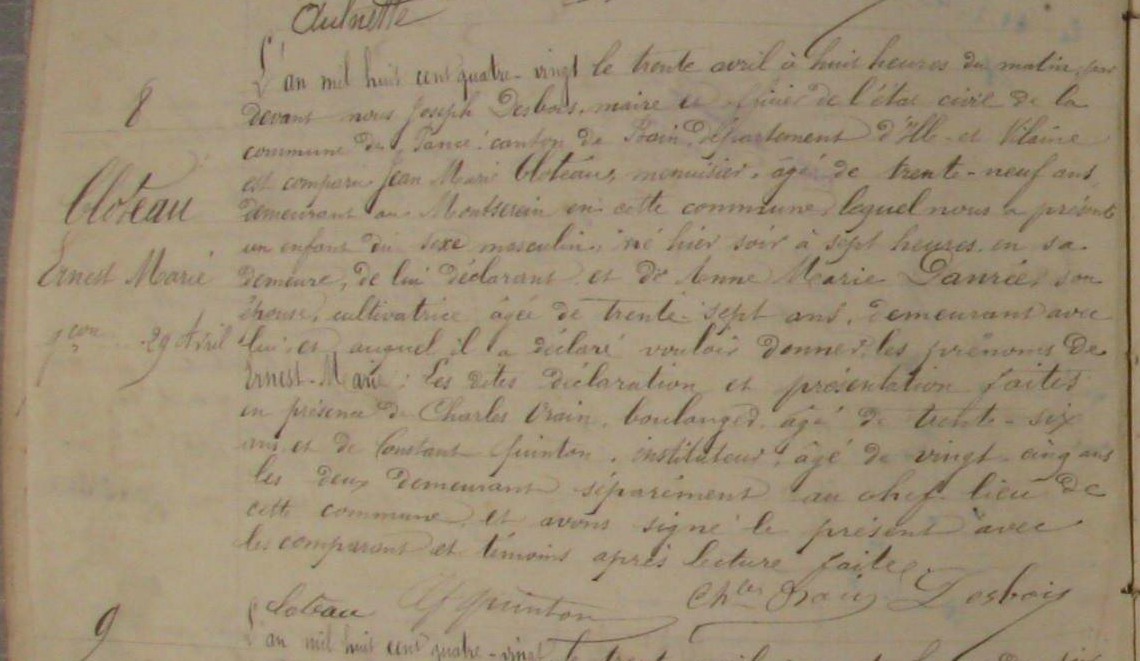 Aulnette
8
Cloteau
Ernest Marie
29 Avril
L'an mil huit cent quatre-vingt le trente avril à huit heures du matin, par
devant nous Joseph Desbois, maire et officier de l'état civil de la
commune de Pancé, canton de Bain, département d'Ille-et-Vilaine
est comparu Jean Marie Cloteau, menuisier, âgé de trente-neuf ans
demeurant au en cette commune, lequel nous a présenté
un enfant du sexe masculin, né hier soir à sept heures, en sa
demeure, de lui déclarant et de Anne Marie Danrée, son
épouse, cultivatrice, âgée de trente-sept ans, demeurant avec
lui, et auquel il a déclaré vouloir donner les prénoms de
Ernest-Marie. Les dites déclaration et présentation faites
en présence de Charles Orain, boulanger, âgé de trente-six
ans, et de Constant Quinton, instituteur, âgé de vingt-cinq ans
les deux demeurant séparément au chef-lieu de
cette commune, et avons signé le présent avec
les comparant et témoins après lecture faite.
Cloteau Quinton Ch.les Orain Desbois
9
L'an mil huit cent quatre-vingt le trente